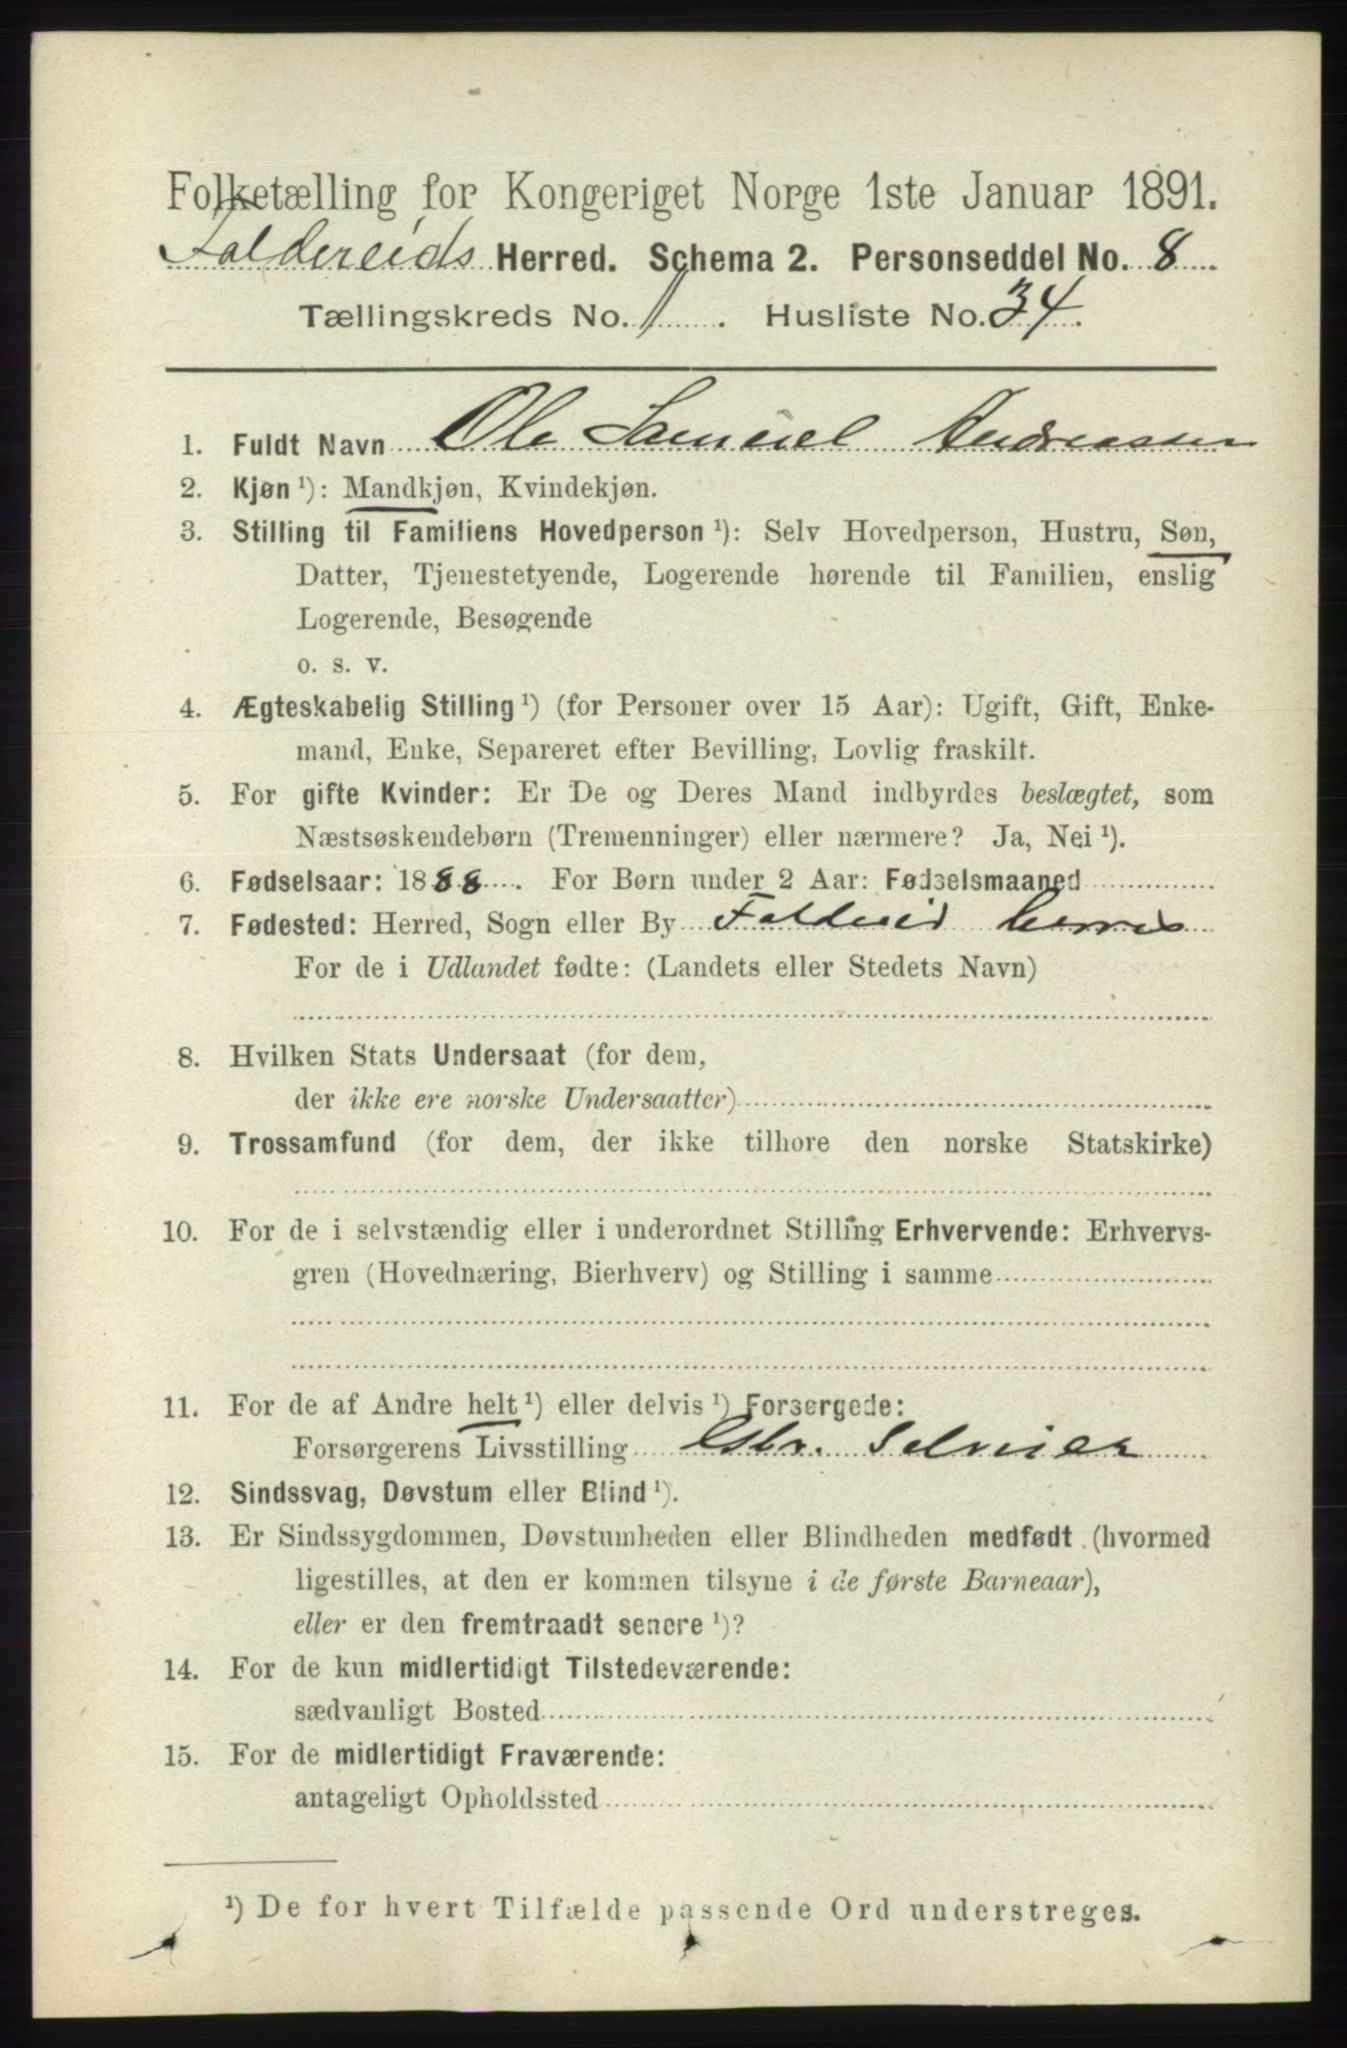 Folketælling for Kongeriget Norge 1ste Januar 1891.
Foldereids Herred. Schema 2. Personseddel No. 8
Tællingskreds No. 1. Husliste No. 34.
1. Fuldt Navn Ole Samuel Andreassen
2. Kjøn ¹): Mandkjøn, Kvindekjøn.
3. Stilling til Familiens Hovedperson ¹): Selv Hovedperson, Hustru, Søn,
Datter, Tjenestetyende, Logerende hørende til Familien, enslig
Logerende, Besøgende
o. s. v.
4. Ægteskabelig Stilling ¹) (for Personer over 15 Aar): Ugift, Gift, Enke-
mand, Enke, Separeret efter Bevilling, Lovlig fraskilt.
5. For gifte Kvinder: Er De og Deres Mand indbyrdes beslægtet, som
Næstsøskendebørn (Tremenninger) eller nærmere? Ja, Nei ¹).
6. Fødselsaar: 1888. For Børn under 2 Aar: Fødselsmaaned
7. Fødested: Herred, Sogn eller By Foldereid
For de i Udlandet fødte: (Landets eller Stedets Navn)
8. Hvilken Stats Undersaat (for dem,
der ikke ere norske Undersaatter)
9. Trossamfund (for dem, der ikke tilhore den norske Statskirke)
10. For de i selvstændig eller i underordnet Stilling Erhvervende: Erhvervs-
gren (Hovednæring, Bierhverv) og Stilling i samme
11. For de af Andre helt ¹) eller delvis ¹) Forsørgede:
Forsørgerens Livsstilling Gbr. Selveier
12. Sindssvag, Døvstum eller Blind ¹).
13. Er Sindssygdommen, Døvstumheden eller Blindheden medfødt (hvormed
ligestilles, at den er kommen tilsyne i de første Barneaar),
eller er den fremtraadt senere ¹)?
14. For de kun midlertidigt Tilstedeværende:
sædvanligt Bosted
15. For de midlertidigt Fraværende:
antageligt Opholdssted
¹) De for hvert Tilfælde passende Ord understreges.